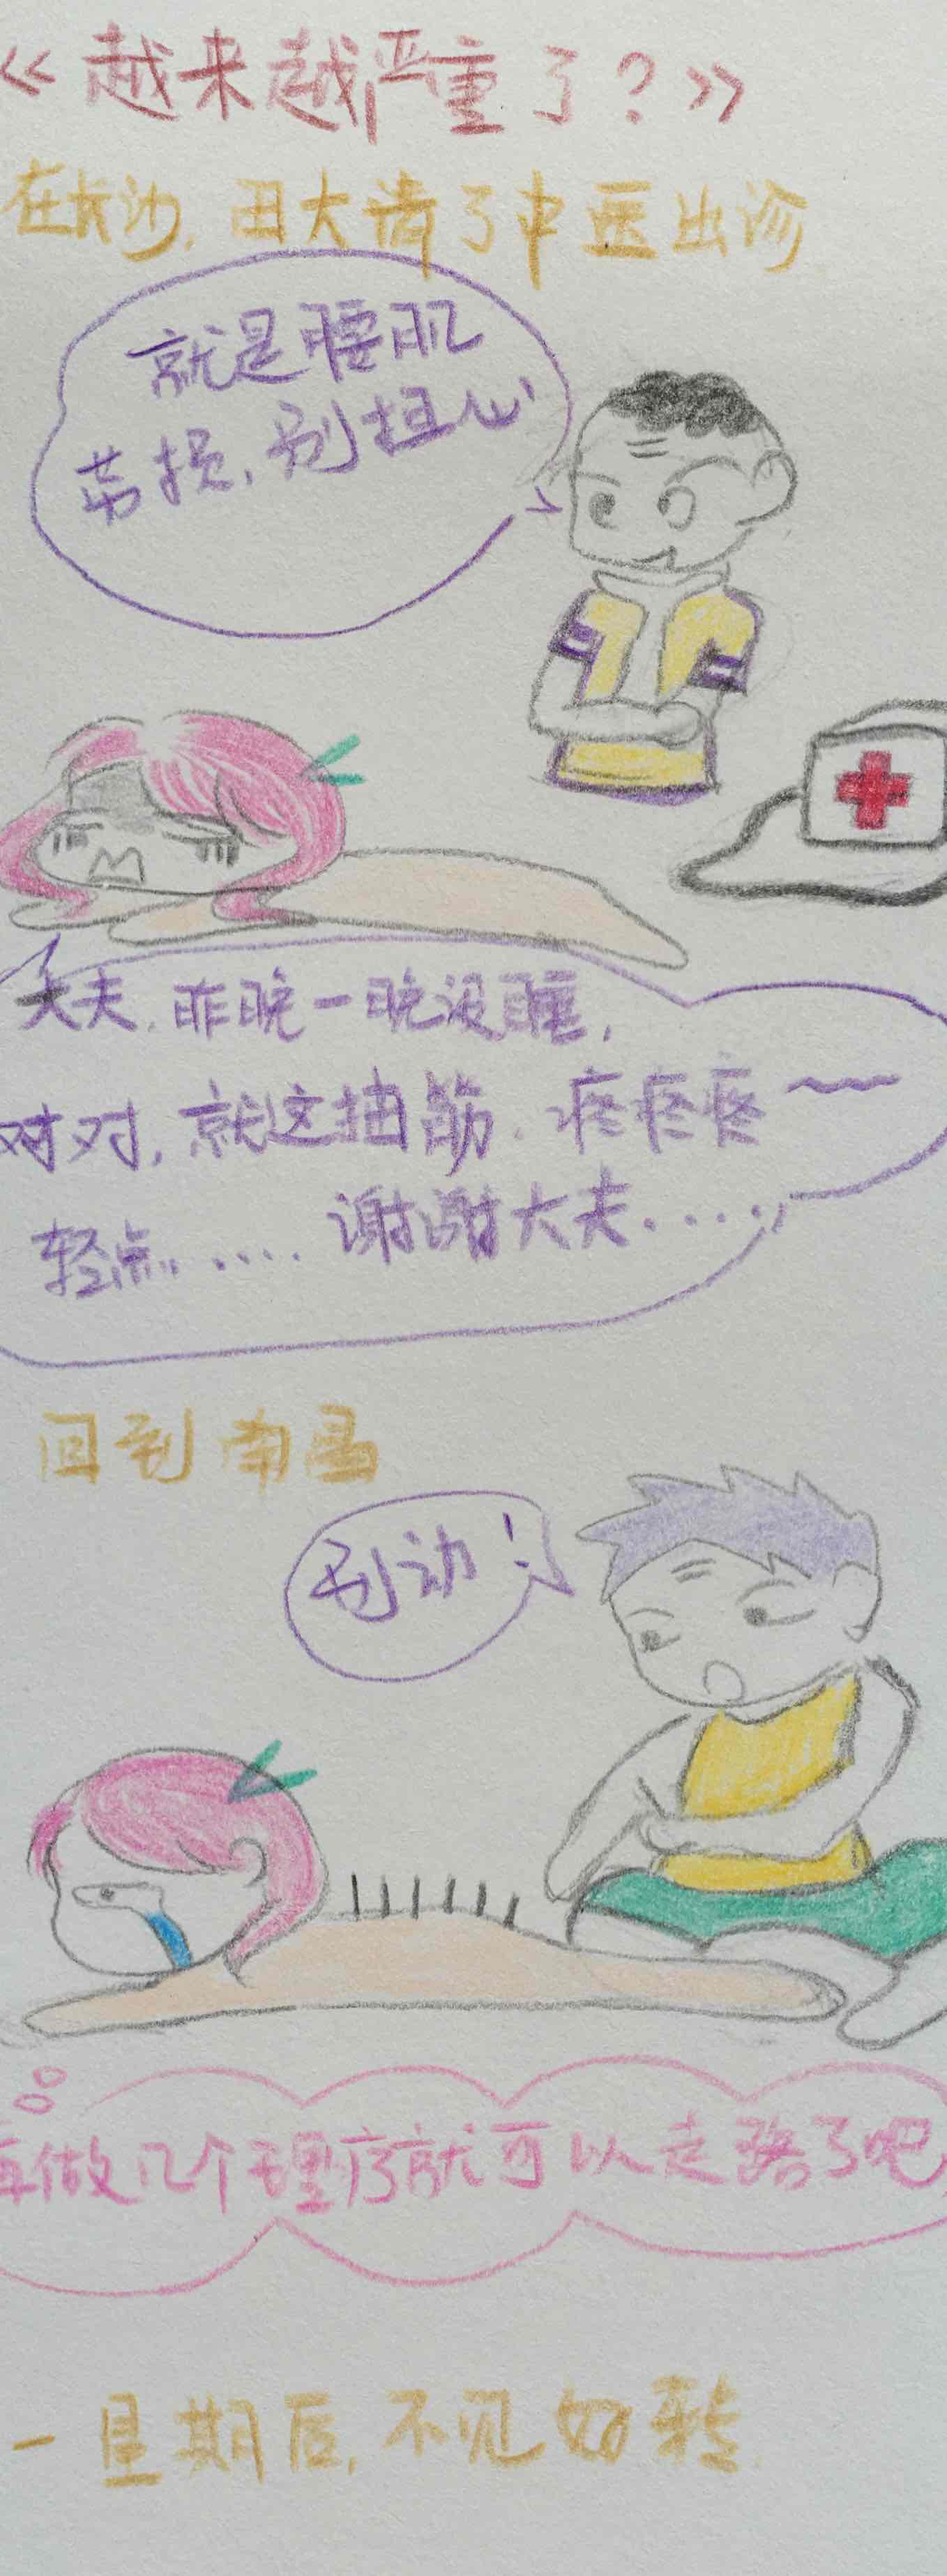 《越来越严重了？》
在长沙，田大请了中医出诊
就是腰肌
劳损，别担心
大夫，昨晚一晚没睡，
对对，就这抽筋，疼疼疼~~
轻点......谢谢大夫.....
回到南昌
别动！
再做几个理疗就可以走路了吧
一星期后，不见好转